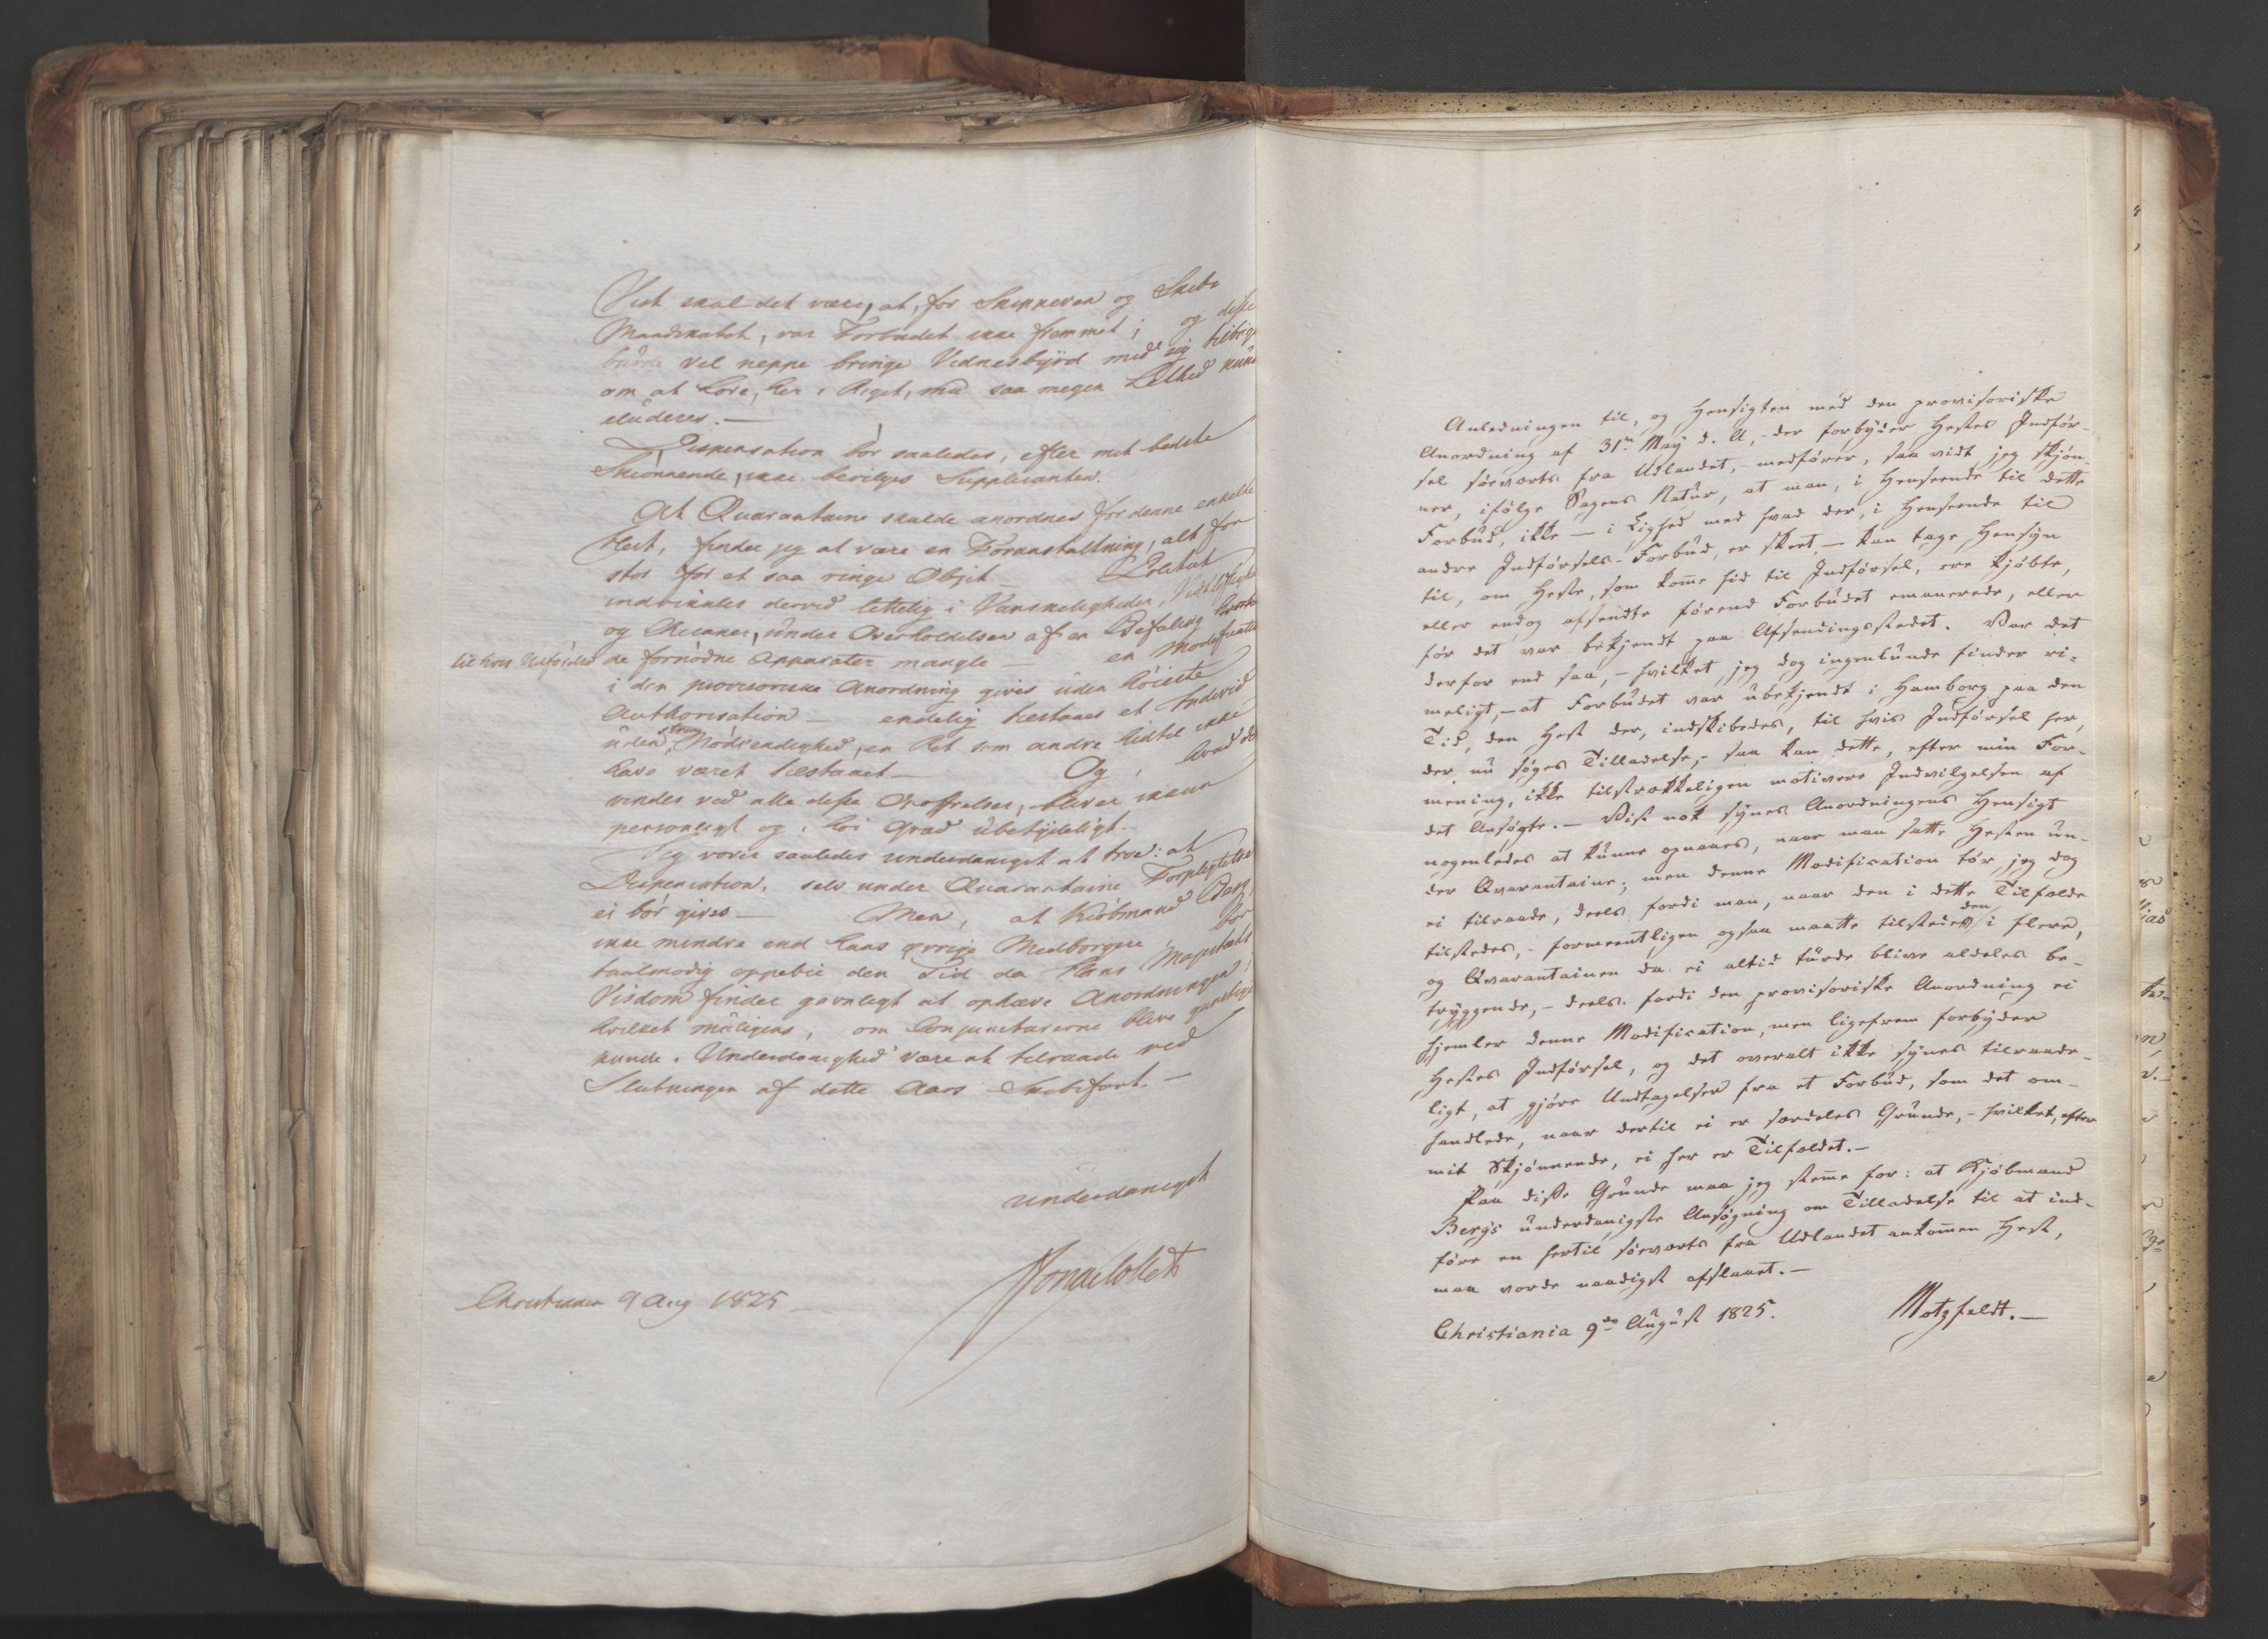 Vist skal det være, at, for Skipperen og Skibs
Mandskabet, var Forbudet ikke fremmet; og disse
burde vel neppe bringe Vidnesbyrd med sig tilbage
om at Love, her i Riget, med saa megen Lethed kunne
eluderes. —
Dispensation bør saaledes, efter mit bedste
Skiønnende, ikke bevilges Supplicanten.
At Quarantaine skulde anordnes for denne enkelte
Hest, finder jeg at være en Foranstaltning, alt for
stor for et saa ringe Objet — Politiet
indvikles derved lettelig i Vanskeligheder, Vidtløftigheder
og Chicaner, under Overholdelsen af en Befaling hvortil
til hvis Udførelse de fornødne Apparater mangle — en Modification
i den provisoriske Anordning gives uden høieste
Authorisation — endelig tilstaaes et Individ
uden Nødvendighed, en Ret som andre hidtil ikke
have været tilstaaet — Og, hvad der
vindes ved alle disse Opoffrelser, bliver ikkun
personligt og i høi Grad ubetydeligt. —
Jeg vover saaledes underdanigst at troe: at
Dispensation, selv under Quarantaine Forpligtelse
ei bør gives — Men, at Kiøbmand Berg,
ikke mindre end hans øvrige Medborgere, bør
taalmodig oppebie den Tid da Hans Majestæts
Visdom finder gavnligt at ophæve Anordningen;
hvilket muligens, om Conjuncturerne bleve gunstige
kunde i Underdanighed være at tilraade ved
Slutningen af dette Aars Skibsfart. —
underdanigst
Christiania 9 Aug 1825 —
Anledningen til, og Hensigten med den provisoriske
Anordning af 31te May d. A, - der forbyder Hestes Indfør-
sel søeværts fra Udlandet, - medfører, saa vidt jeg skjøn-
ner, ifølge Sagens Natur, at man, i Henseende til dette
Forbud, ikke — i Lighed med hvad der, i Henseende til
andre Indførsels-Forbud, er skeet, — kan tage Hensyn
til, om Heste, som komme hid til Indførsel, ere kjøbte,
eller endog afsendte førend Forbudet emanerede, eller
før det var bekjendt paa Afsendingsstedet. Var det
derfor end saa, - hvilket jeg dog ingenlunde finder ri-
meligt, - at Forbudet var ubekjendt i Hamborg paa den
Tid, den Hest der, indskibedes, til hvis Indførsel her,
der nu søges Tilladelse, - saa kan dette, efter min For-
mening, ikke tilstrækkeligen motivere Indvilgelsen af
det Ansøgte. — Vist nok synes Anordningens Hensigt
nogenledes at kunne opnaaes, naar man satte Hesten un-
der Qvarantaine; men denne Modification tør jeg dog
ei tilraade, deels fordi man, naar den i dette Tilfælde
tilstedes, - formeentligen ogsaa maatte tilstede den i flere,
og Qvarantainen da ei altid turde blive aldeles be-
tryggende, - deels fordi den provisoriske Anordning ei
hjemler denne Modification, men ligefrem forbyder
Hestes Indførsel, og det overalt ikke synes tilraade-
ligt, at gjøre Undtagelser fra et Forbud, som det om-
handlede, naar dertil ei er særdeles Grunde, - hvilket, efter
mit Skjønnende, ei her er Tilfældet. —
Paa disse Grunde maa jeg stemme for: at Kjøbmand
Berg's underdanigste Ansøgning om Tilladelse til at ind-
føre en hertil søeværts fra Udlandet ankommen Hest,
maa vorde naadigst afslaaet. —
Christiania 9de August 1825. Motzfeldt. —